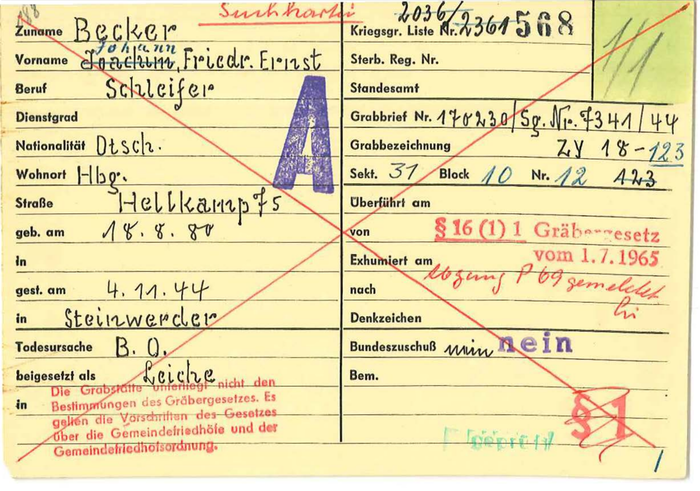 188
Suchkartei
Zuname Becker
Johann
Vorname Joachim, Friedr. Ernst
Beruf Schleifer
Dienstgrad
Nationalität Dtsch.
Wohnort Hbg.
Straße Hellkamp 75
geb. am 18. 8. 80
in
gest. am 4. 11. 44
in Steinwerder
Todesursache B. O.
beigesetzt als Leiche
in
Die Grabstätte unterliegt nicht den
Bestimmungen des Gräbergesetzes. Es
gelten die Vorschriften des Gesetzes
über die Gemeindefriedhöfe und der
Gemeindefriedhofsordnung.
A
2036/
Kriegsgr. Liste Nr. 2361 568
Sterb. Reg. Nr.
Standesamt
Grabbrief Nr. 170230/Sg. Nr. 7341/44
Grabbezeichnung ZY 18-123
Sekt. 31 Block 10 Nr. 12 123
Überführt am
von
§ 16 (1) 1 Gräbergesetz
vom 1.7.1965
Exhumiert am
Abgang P 69 gemeldet
nach
Denkzeichen
Bundeszuschuß nein nein
Bem.
§ 1
geprüft
1